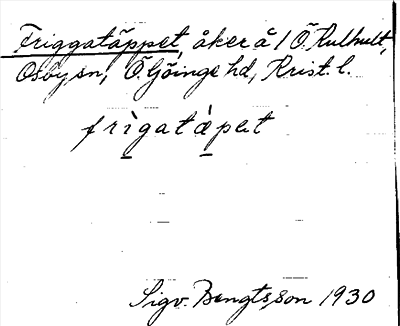 Friggatäppet, åker å 1 Ö. Kulhult,
Osby sn, Ö. Göinge hd, Krist. l.
frìgatàpet
Sigv. Bengtsson 1930